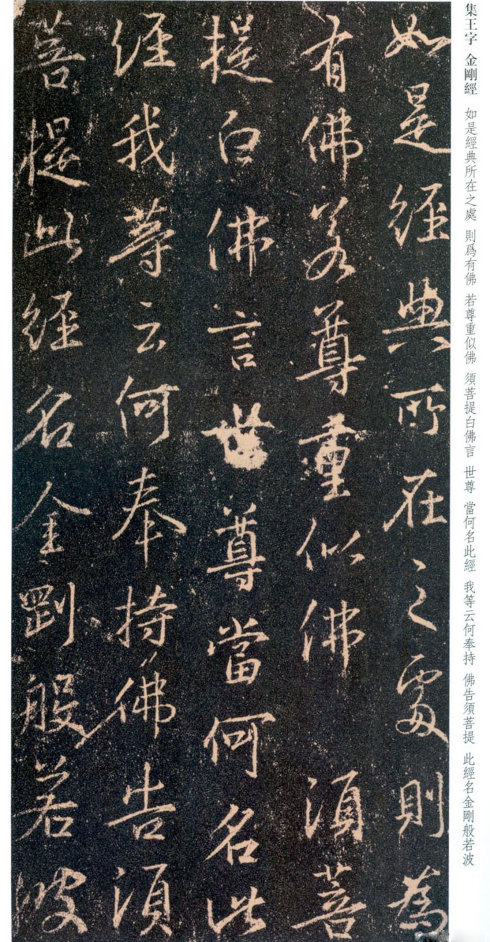 如是經典所在之處則為
有佛若尊重似佛 須菩
提白佛言世尊當何名此
經我等云何奉持佛告須
菩提此經名金剛般若波
集王字 金剛經 如是經典所在之處 則爲有佛 若尊重似佛 須菩提白佛言 世尊 當何名此經 我等云何奉持 佛告須菩提 此經名金剛般若波